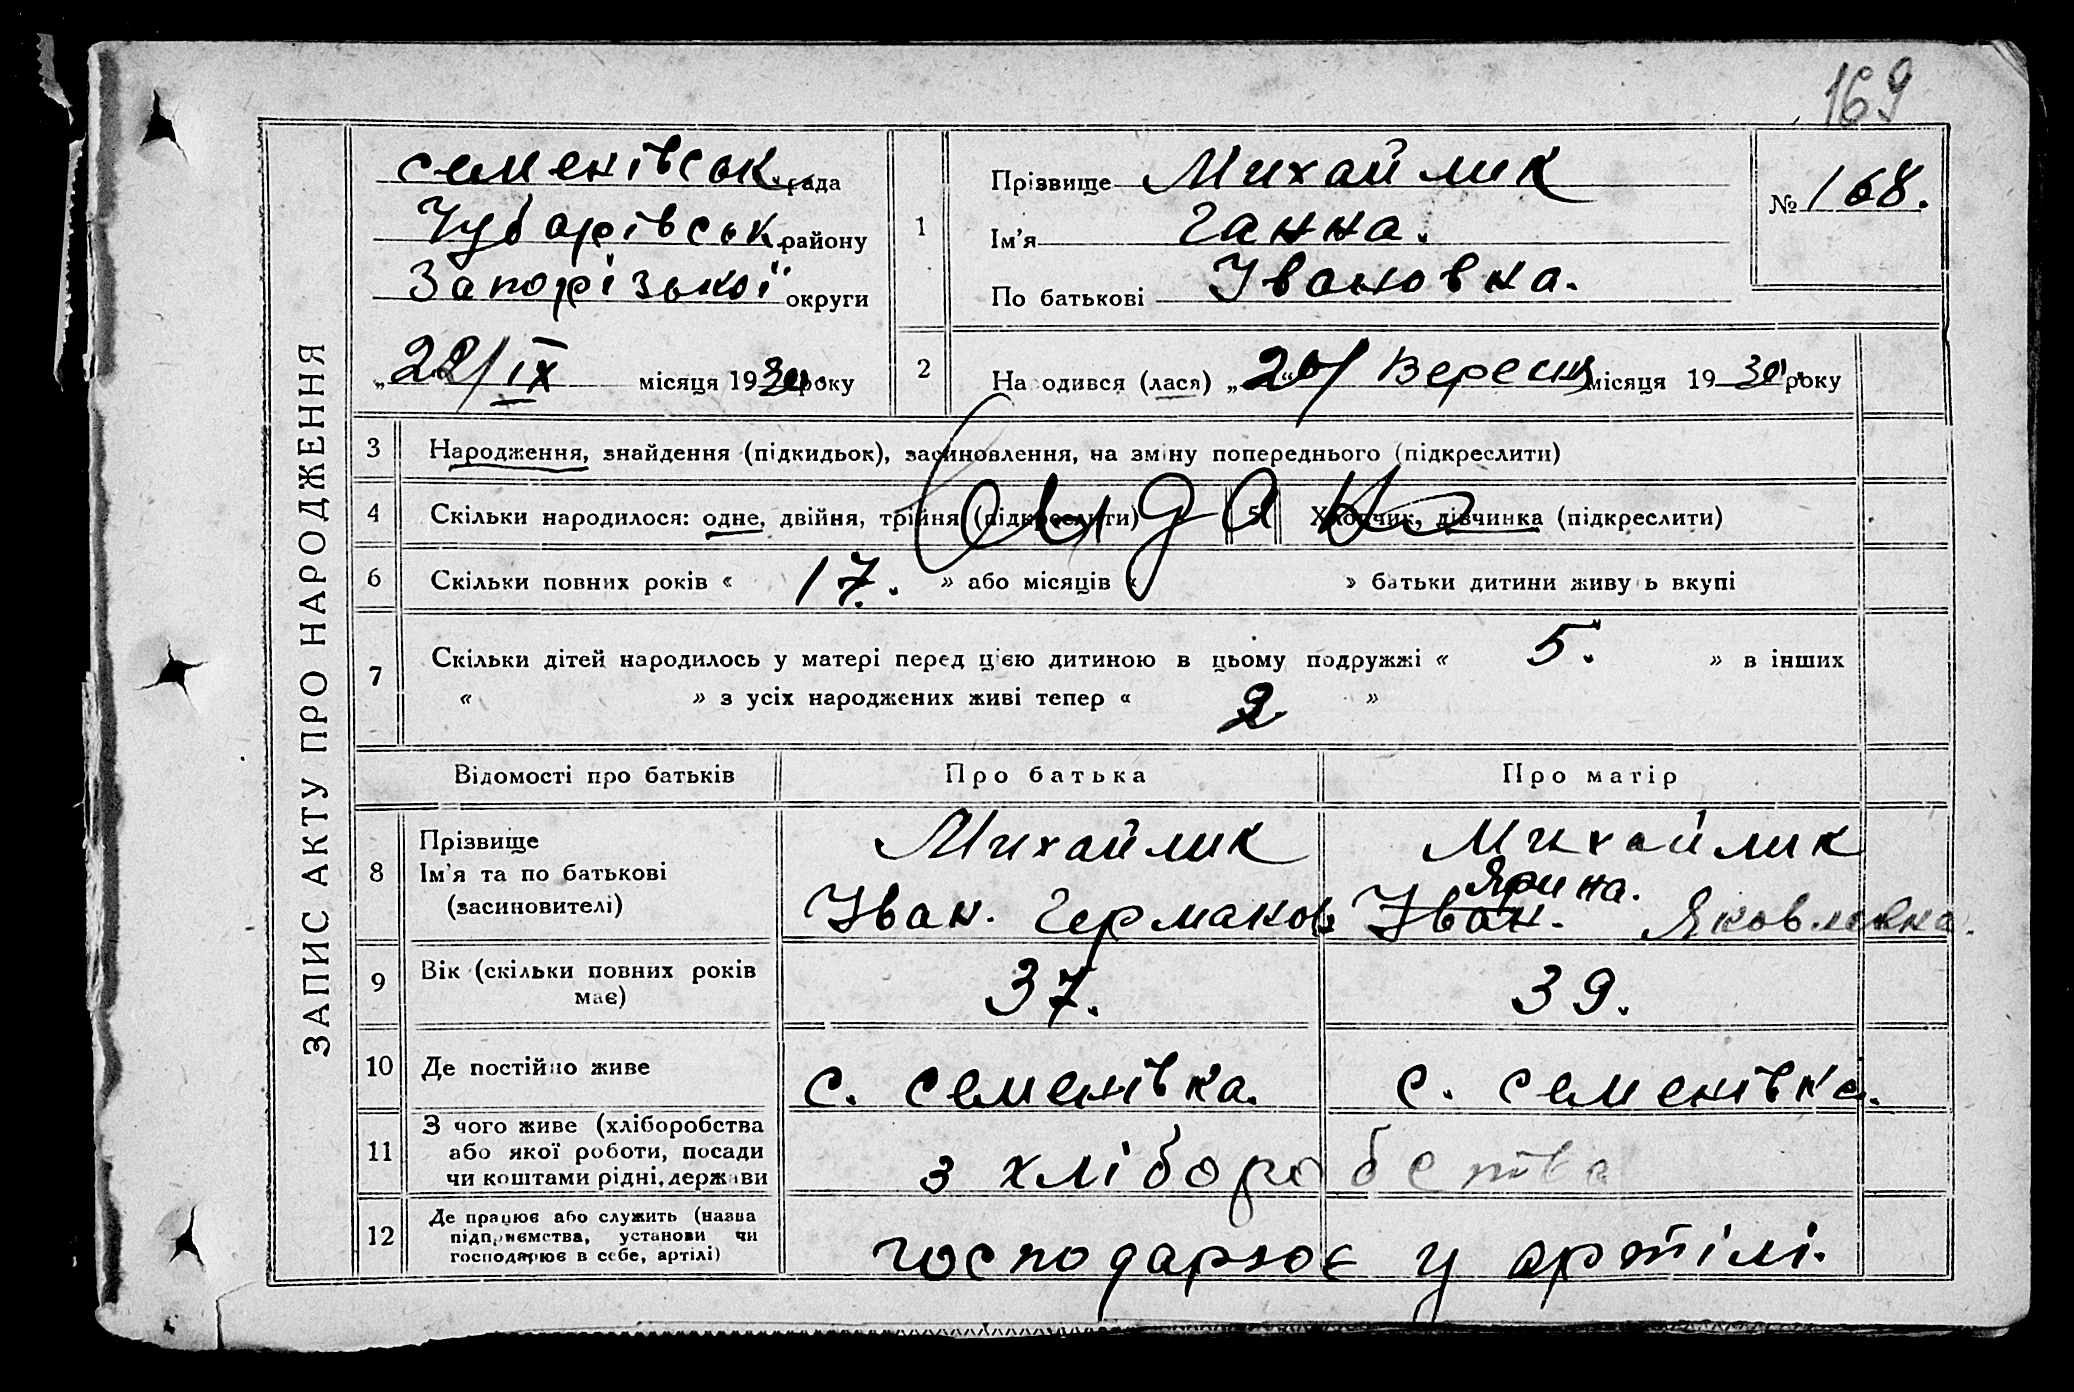 169
ЗАПИС АКТУ ПРО НАРОДЖЕННЯ
семенівськ. рада
Чубарівськ. району
Запорізької округи
„22/IX місяця 1930 року
1
Прізвище Михайлик
Ім'я Ганна.
По батькові Івановна.
№ 168.
2
На одився (лася) „20/ Вересня місяця 1930 року
3 Народження, знайдення (підкидьок), засиновлення, на зміну попереднього (підкреслити)
4 Скільки народилося: одне, двійня, трійня (підкреслити) 5 Хлопчик, дівчинка (підкреслити)
6 Скільки повних років « 17. » або місяців « » батьки дитини живу ь вкупі
7 Скільки дітей народилось у матері перед цією дитиною в цьому подружжі « 5. » в інших
« » з усіх народжених живі тепер « 2 »
Відомості про батьків Про батька Про матір
8 Прізвище
Ім'я та по батькові
(засиновителі)
Михайлик
Іван. Германов
Михайлик
Ярина.
Іван. Яковлевна.
9 Вік (скільки повних років
має)
37. 39.
10 Де постійно живе с. семенівка. с. семенівка.
11 З чого живе (хліборобства
або якої роботи, посади
чи коштами рідні, держави
з хліборобства
12 Де працює або служить (назва
підприємства, установи чи
господарює в себе, артілі)
господарює у артілі.